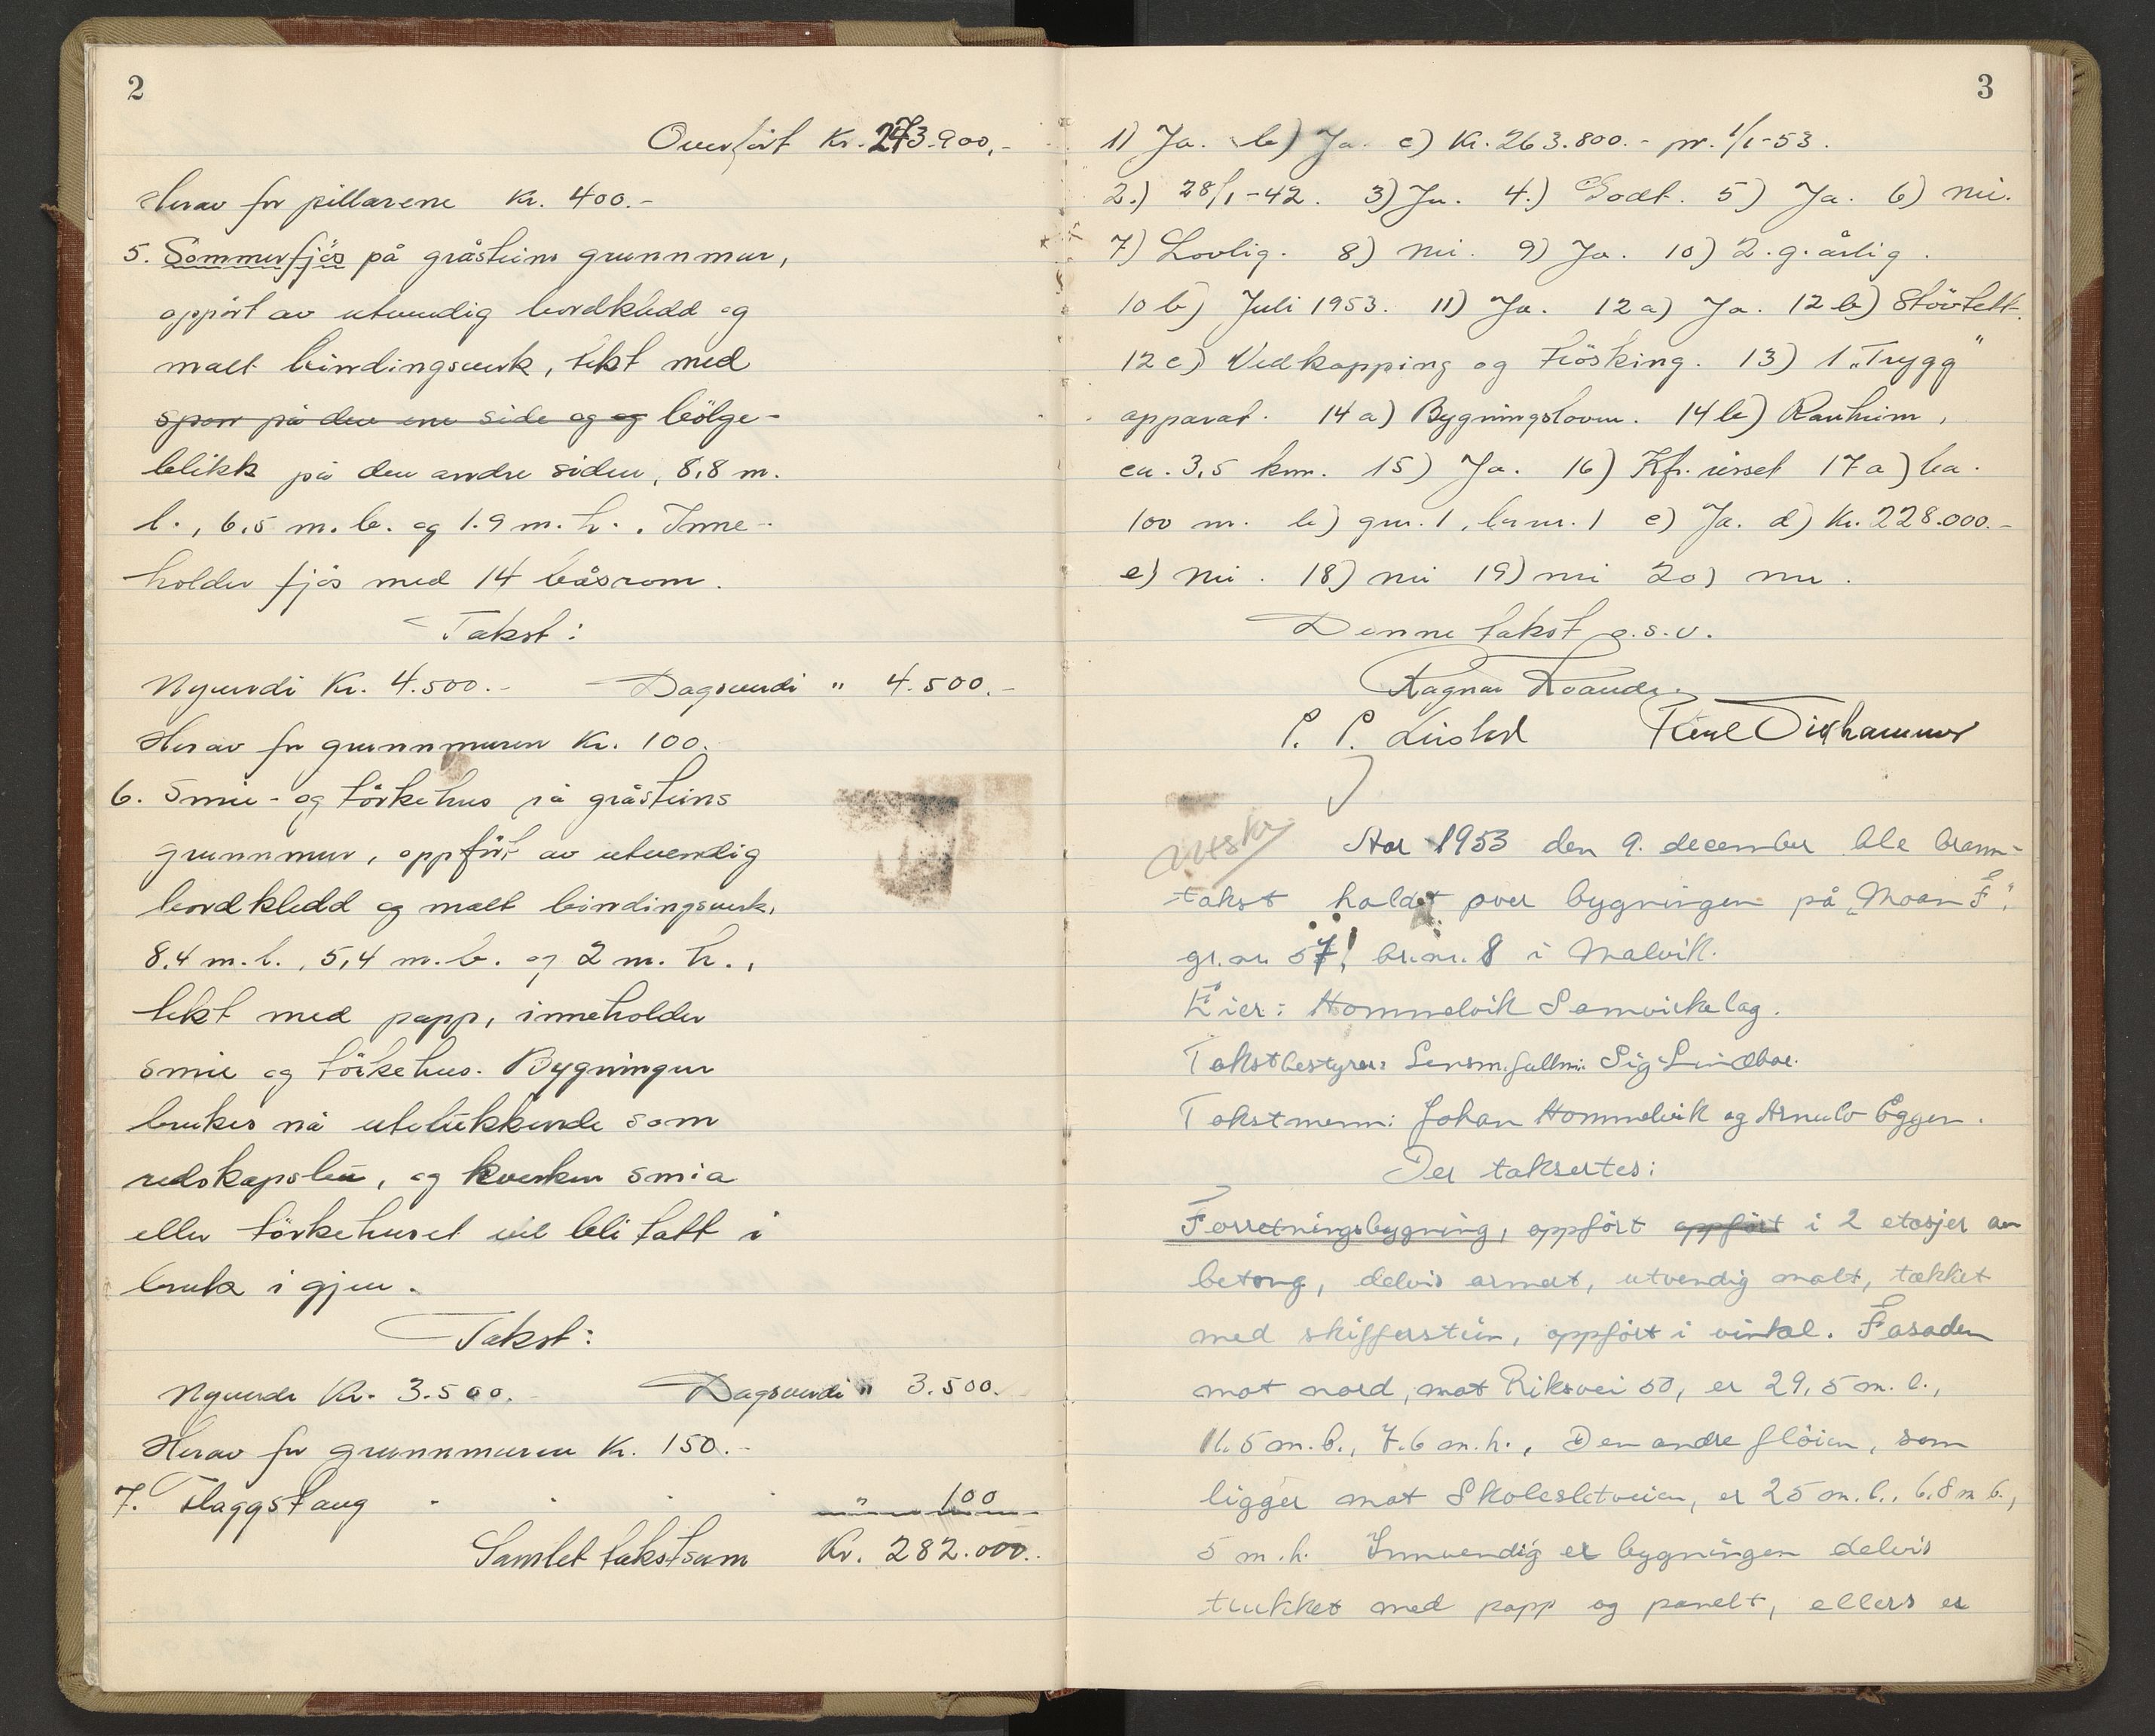 2
Overført Kr. 273.900,-
Herav for pillarene Kr. 400.-
5. Sommerfjös på gråsteins grunnmur,
oppört av utvendig bordkledd og
malt bindingsverk, tekt med
spon på den ene side og og bölge-
blikk på den andre siden, 8,8 m.
l., 6,5 m. b. og 1.9 m. h.. Inne-
holder fjös med 14 båsrom.
Takst:
Nyverdi Kr. 4.500.- Dagsverdi " 4.500.-
Herav for grunnmuren Kr. 100.
6. Smie- og törkehus på gråsteins
grunnmur, oppfört av utvendig
bordkledd og malt bindingsverk,
8,4 m. l., 5,4 m. b. og 2 m. h.,
tekt med papp, inneholder
smie og törkehus. Bygningen
brukes nå utelukkende som
redskapsbu, og hverken smia
eller törkehuset vil bli tatt i
bruk i gjen.
Takst:
Nyverdi Kr. 3.500. Dagsverdi " 3.500.
Herav for grunnmuren Kr. 150.-
7. Flaggstang . . . . " 100
Samlet takstsum Kr. 282.000.
3
1) Ja. b) Ja. c) Kr. 263.800.- pr. 1/1-53.
2.) 28/1-42. 3) Ja. 4.) Godt. 5) Ja. 6) Nei.
7) Lovlig. 8) Nei. 9) Ja. 10) 2. g. årlig.
10 b) Juli 1953. 11) Ja. 12 a) Ja. 12 b) Stövtett.
12 c) Vedkapping og trösking. 13) 1 „Trygg"
apparat. 14 a) Bygningsloven. 14 b) Ranheim,
ca. 3,5 km. 15) Ja. 16) Kfr. 17 a) ca.
100 m. b) gnr. 1, brnr. 1 c) Ja. d) Kr. 228.000.-
e) Nei. 18) nei 19) nei 20) nei.
Denne takst o.s.v.
Ragnar
P. P.
Utskr.
Aar 1953 den 9. december ble brann-
takst holdt over bygningen på „Moan F".
gr.nr. 57, br.nr. 8 i Malvik.
Eier: Hommelvik Samvirkelag.
Takstbestyrer: Lensm.fullm. Sig. Lindboe.
Takstmenn: Johan Hommelvik og Arnulv Eggen.
Der taksertes:
Forretningsbygning, oppfört oppfört i 2 etasjer av
betong, delvis armert, utvendig malt, tækket
med skifferstein, oppfört i vinkel. Fasaden
mot nord, mot Riksvei 50, er 29,5 m. l.,
11.5 m. b., 7.6 m. h., Den andre flöien, som
ligger mot Skolesletveien, er 25 m. l., 6,8 m b.,
5 m. h. Innvendig er bygningen delvis
trukket med papp og panelt, ellers er